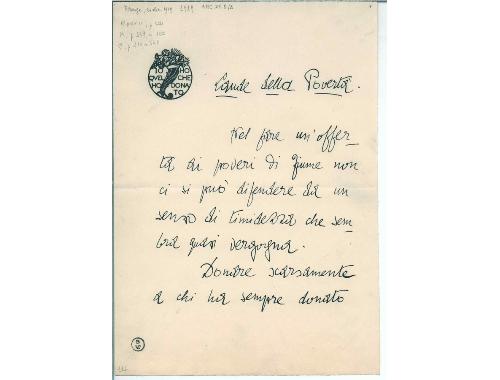 1919
IO HO
QVEL CHE
HO DONA
TO
Laude della Povertà.
Nel fare un'offer-
ta ai poveri di Fiume non
ci si può difendere da un
senso di timidezza che sem-
bra quasi vergogna.
Donare scarsamente
a chi ha sempre donato